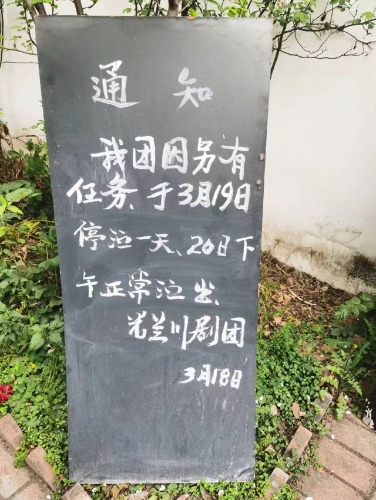 通知
我团因另有
任务、于3月19日
停演一天、20日下
午正常演出、
光兰川剧团
3月18日